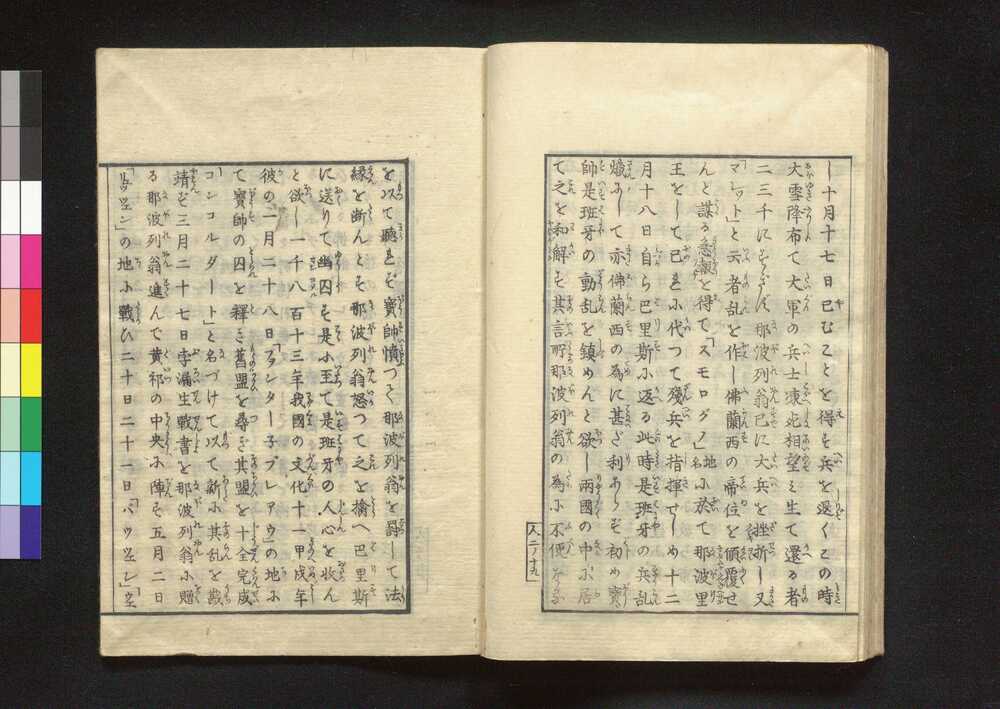 し十月十七日已むことを得も兵を退くこの時
大雪降布て大軍の兵士凍死相望ミ生て還る者
二三千にすぎず那波列翁已に大兵を挫折し又
「マレット」と云者乱を作し佛蘭西の帝位を傾覆せ
んと謀る急報を得て「スモロゲノ」地名小於て那波里
王をして己れ小代つて殘兵を指揮せしめ十二
月十八日自ら巴里斯小返る此時是班牙の兵乱
熾ふして亦佛蘭西の為に甚ざ利あらず初め寶
帥是班牙の動乱を鎮めんと欲し兩國の中小居
て之を和解も其言所那波列翁の為小不便
人二ノ十九
を以て聴もず寶帥憤つて那波列翁を罰して法
縁を断んとも那波列翁怒つて之を擒へ巴里斯
に送りて幽囚も是小至て是班牙の人心を收ん
と欲し一千八百十三年我國の文化十一甲戌年
彼の一月二十八日「ヲンター子ブレアウ」の地小
て寶帥の囚を釋き舊盟を尋き其盟を十全完成
「コンコルダート」と名づけて以て新小其乱を戡
靖も三月二十七日孛漏生戰書を那波列翁小贈
る那波列翁進んで黄祁の中央小陣も五月二日
「リュッツェン」の地小戰ひ二十日二十一日「バウツェン」